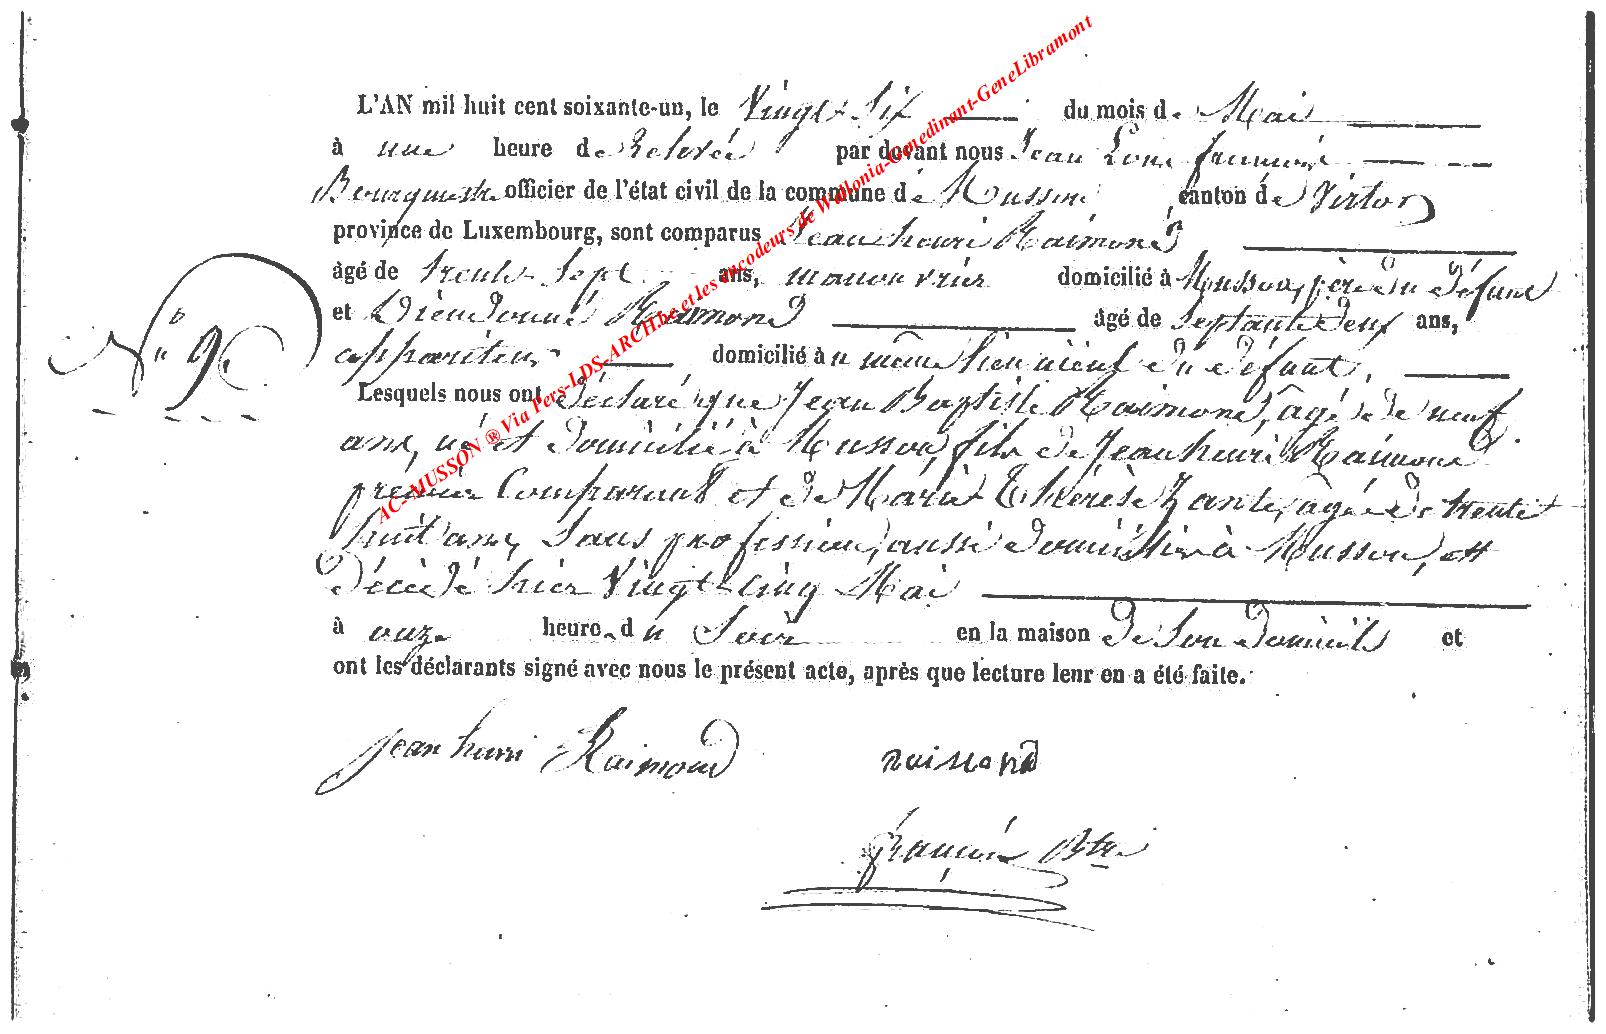 L'AN mil huit cent soixante-un, le Vingt Six du mois de Mai
à une heure de Relevée par devant nous Jean
Bourgmestre officier de l'état civil de la commune de Musson canton de Virton
province de Luxembourg, sont comparus Jean henri Raimond
âgé de trente Sept ans, manouvrier domicilié à Musson, père du défunt
et Dieudonné Raimond âgé de Septante deux ans,
N° 9. appariteur domicilié au même lieu aïeul du défunt,
Lesquels nous ont déclaré que Jean Baptiste Raimond, âgé de neuf
ans, né et domicilié à Musson, fils de Jean henri Raimond
premier Comparant et de Marie Thérèse Zante, agée de trente
huit ans, Sans profession, aussi domiciliée à Musson, est
décédé hier Vingt cinq Mai
à onze heure du Soir en la maison de Son domicile et
ont les déclarants signé avec nous le présent acte, après que lecture leur en a été faite.
jean henri Raimond raimond
Btre
AC-MUSSON ® Via Pers-LDS-ARCH.be et les encodeurs de Wallonia-Genedinant-GeneLibramont